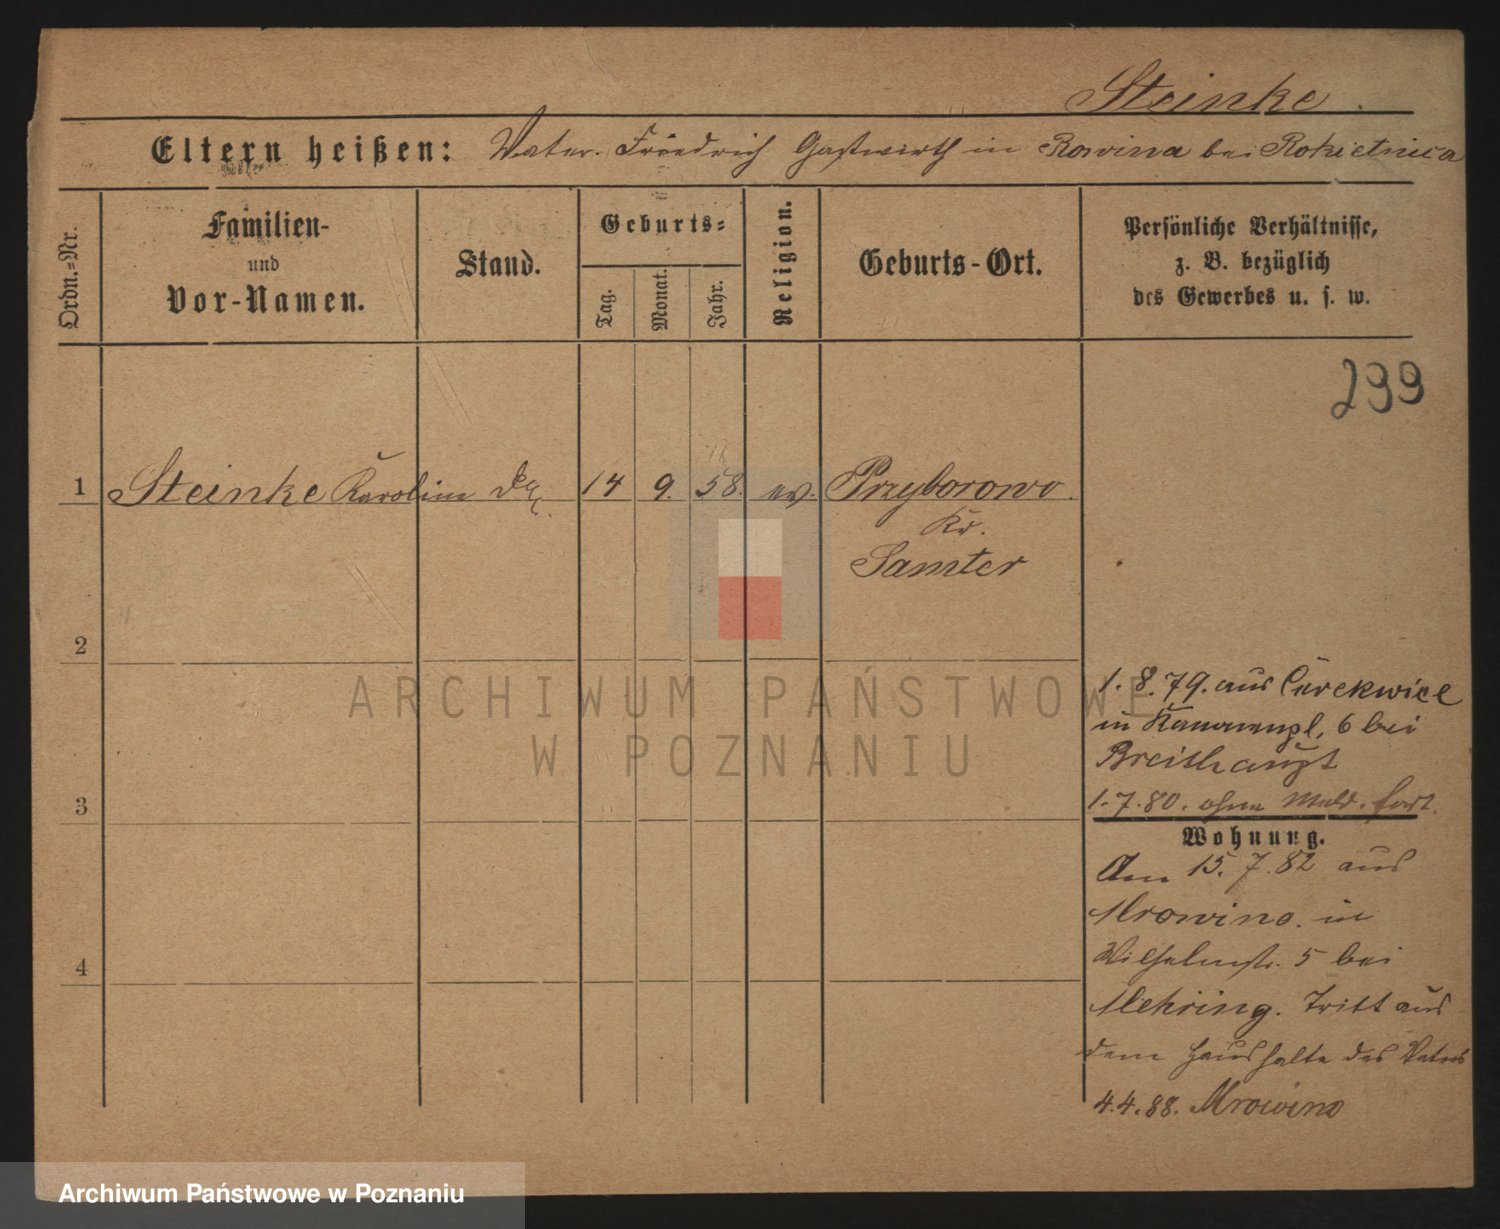 Steinke.
Eltern heißen: Vater. Friedrich Gastwirth in Rowina bei Rokietnica
Ordn.=Nr.
Familien-
und
Vor-Namen.
Stand.
Geburts=
Tag.
Monat.
Jahr.
Religion.
Geburts-Ort.
Persönliche Verhältnisse,
z. B. bezüglich
des Gewerbes u. s. w.
299
1 Steinke Karoline 14 9. 58. ev. Przyborowo.
Kr.
Samter
2
3
4
1. 8. 79. aus Cerekwice
in Kanonenpl. 6 bei
Breithaupt
1. 7. 80. ohne Meld. fort.
Wohnung.
Am 15. 7. 82 aus
Mrowino. in
Wilhelmstr. 5 bei
Mehring. Tritt aus
dem Haushalte des Vaters
4.4.88. Mrowino
ARCHIWUM PAŃSTWOWE
W POZNANIU
Archiwum Państwowe w Poznaniu